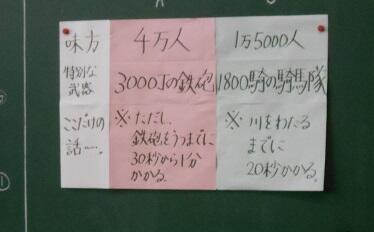 味方 4万人 1万5000人
特別な武器 3000丁の鉄砲 1800騎の騎馬隊
ここだけの話…。
※ただし、
鉄砲をうつまでに
30秒から1分
かかる。
※川をわたる
までに
20秒かかる。